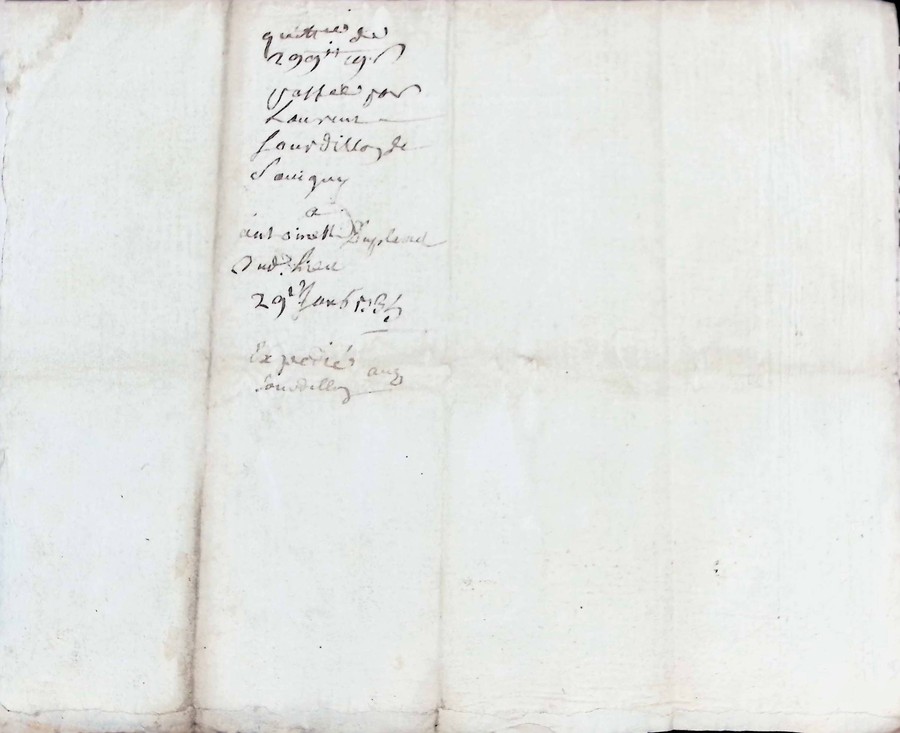 quittance de
299tt 19s
passée par
Laurent
Sourdillon de
Savigny
a
antoinette Duplend
dud. lieu
29e Janv
Expedié aux
Sourdillon